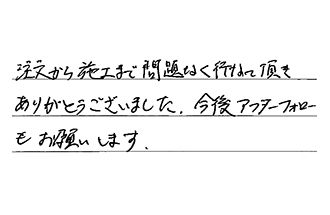 注文から施工まで問題なく行なって頂き
ありがとうございました。今後アフターフォロー
もお願いします。